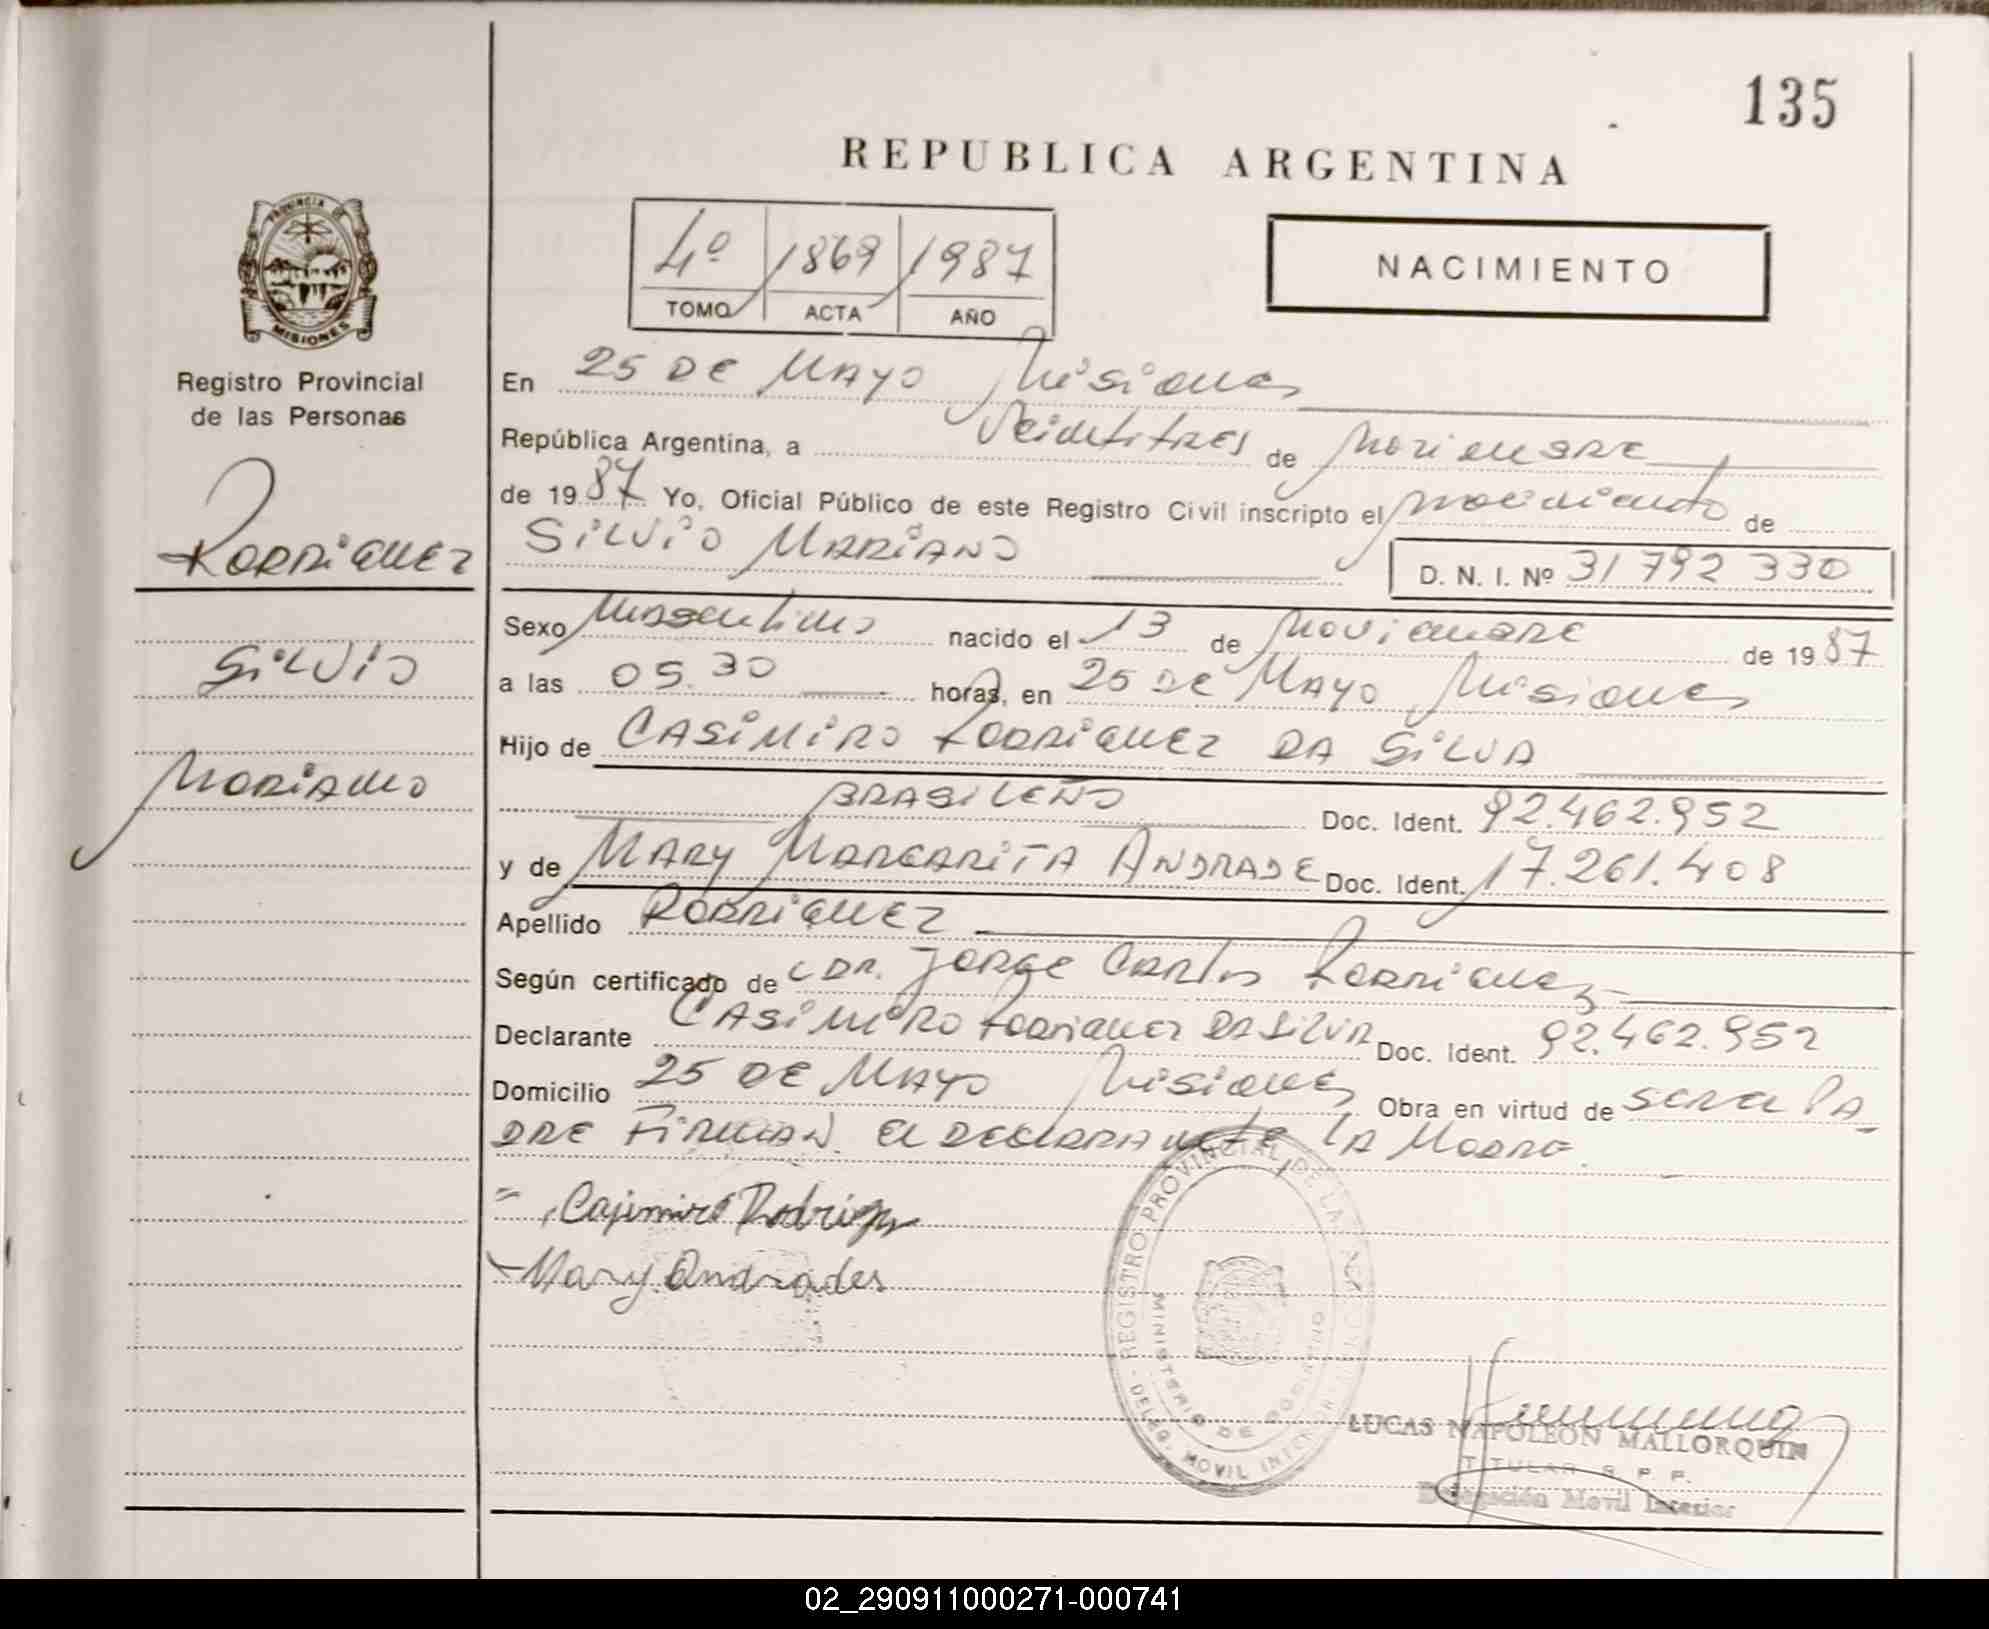 135
REPUBLICA ARGENTINA
4º 1869 1987
TOMO ACTA AÑO
NACIMIENTO
PROVINCIA DE
MISIONES
Registro Provincial
de las Personas
RODRIGUEZ
SILVIO
MARIANO
En 25 DE MAYO Misiones
República Argentina, a Veintitres de Noviembre
de 1987 Yo, Oficial Público de este Registro Civil inscripto el nacimiento de
SILVIO MARIANO D. N. I. Nº 31 792 330
Sexo Masculino nacido el 13 de Noviembre de 1987
a las 05.30 horas, en 25 DE MAYO Misiones
Hijo de CASIMIRO RODRIGUEZ DA SILVA
BRASILEÑO Doc. Ident. 92.462.952
y de MARY MARGARITA ANDRADE Doc. Ident. 17.261.408
Apellido RODRIGUEZ
Según certificado de DR. JORGE CARLOS RODRIGUEZ
Declarante CASIMIRO RODRIGUEZ DA SILVA Doc. Ident. 92.462.952
Domicilio 25 DE MAYO Misiones Obra en virtud de SER EL PA
DRE FIRMAN EL DECLARANTE, LA MADRE.
Casimiro Rodriguez
Mary Andrades
REGISTRO PROVINCIAL DE LAS
MINISTERIO DE GOBIERNO
DELEG. MOVIL
LUCAS NAPOLEON MALLORQUIN
TITULAR R. P. P.
Delegación Movil Interior
02_290911000271-000741